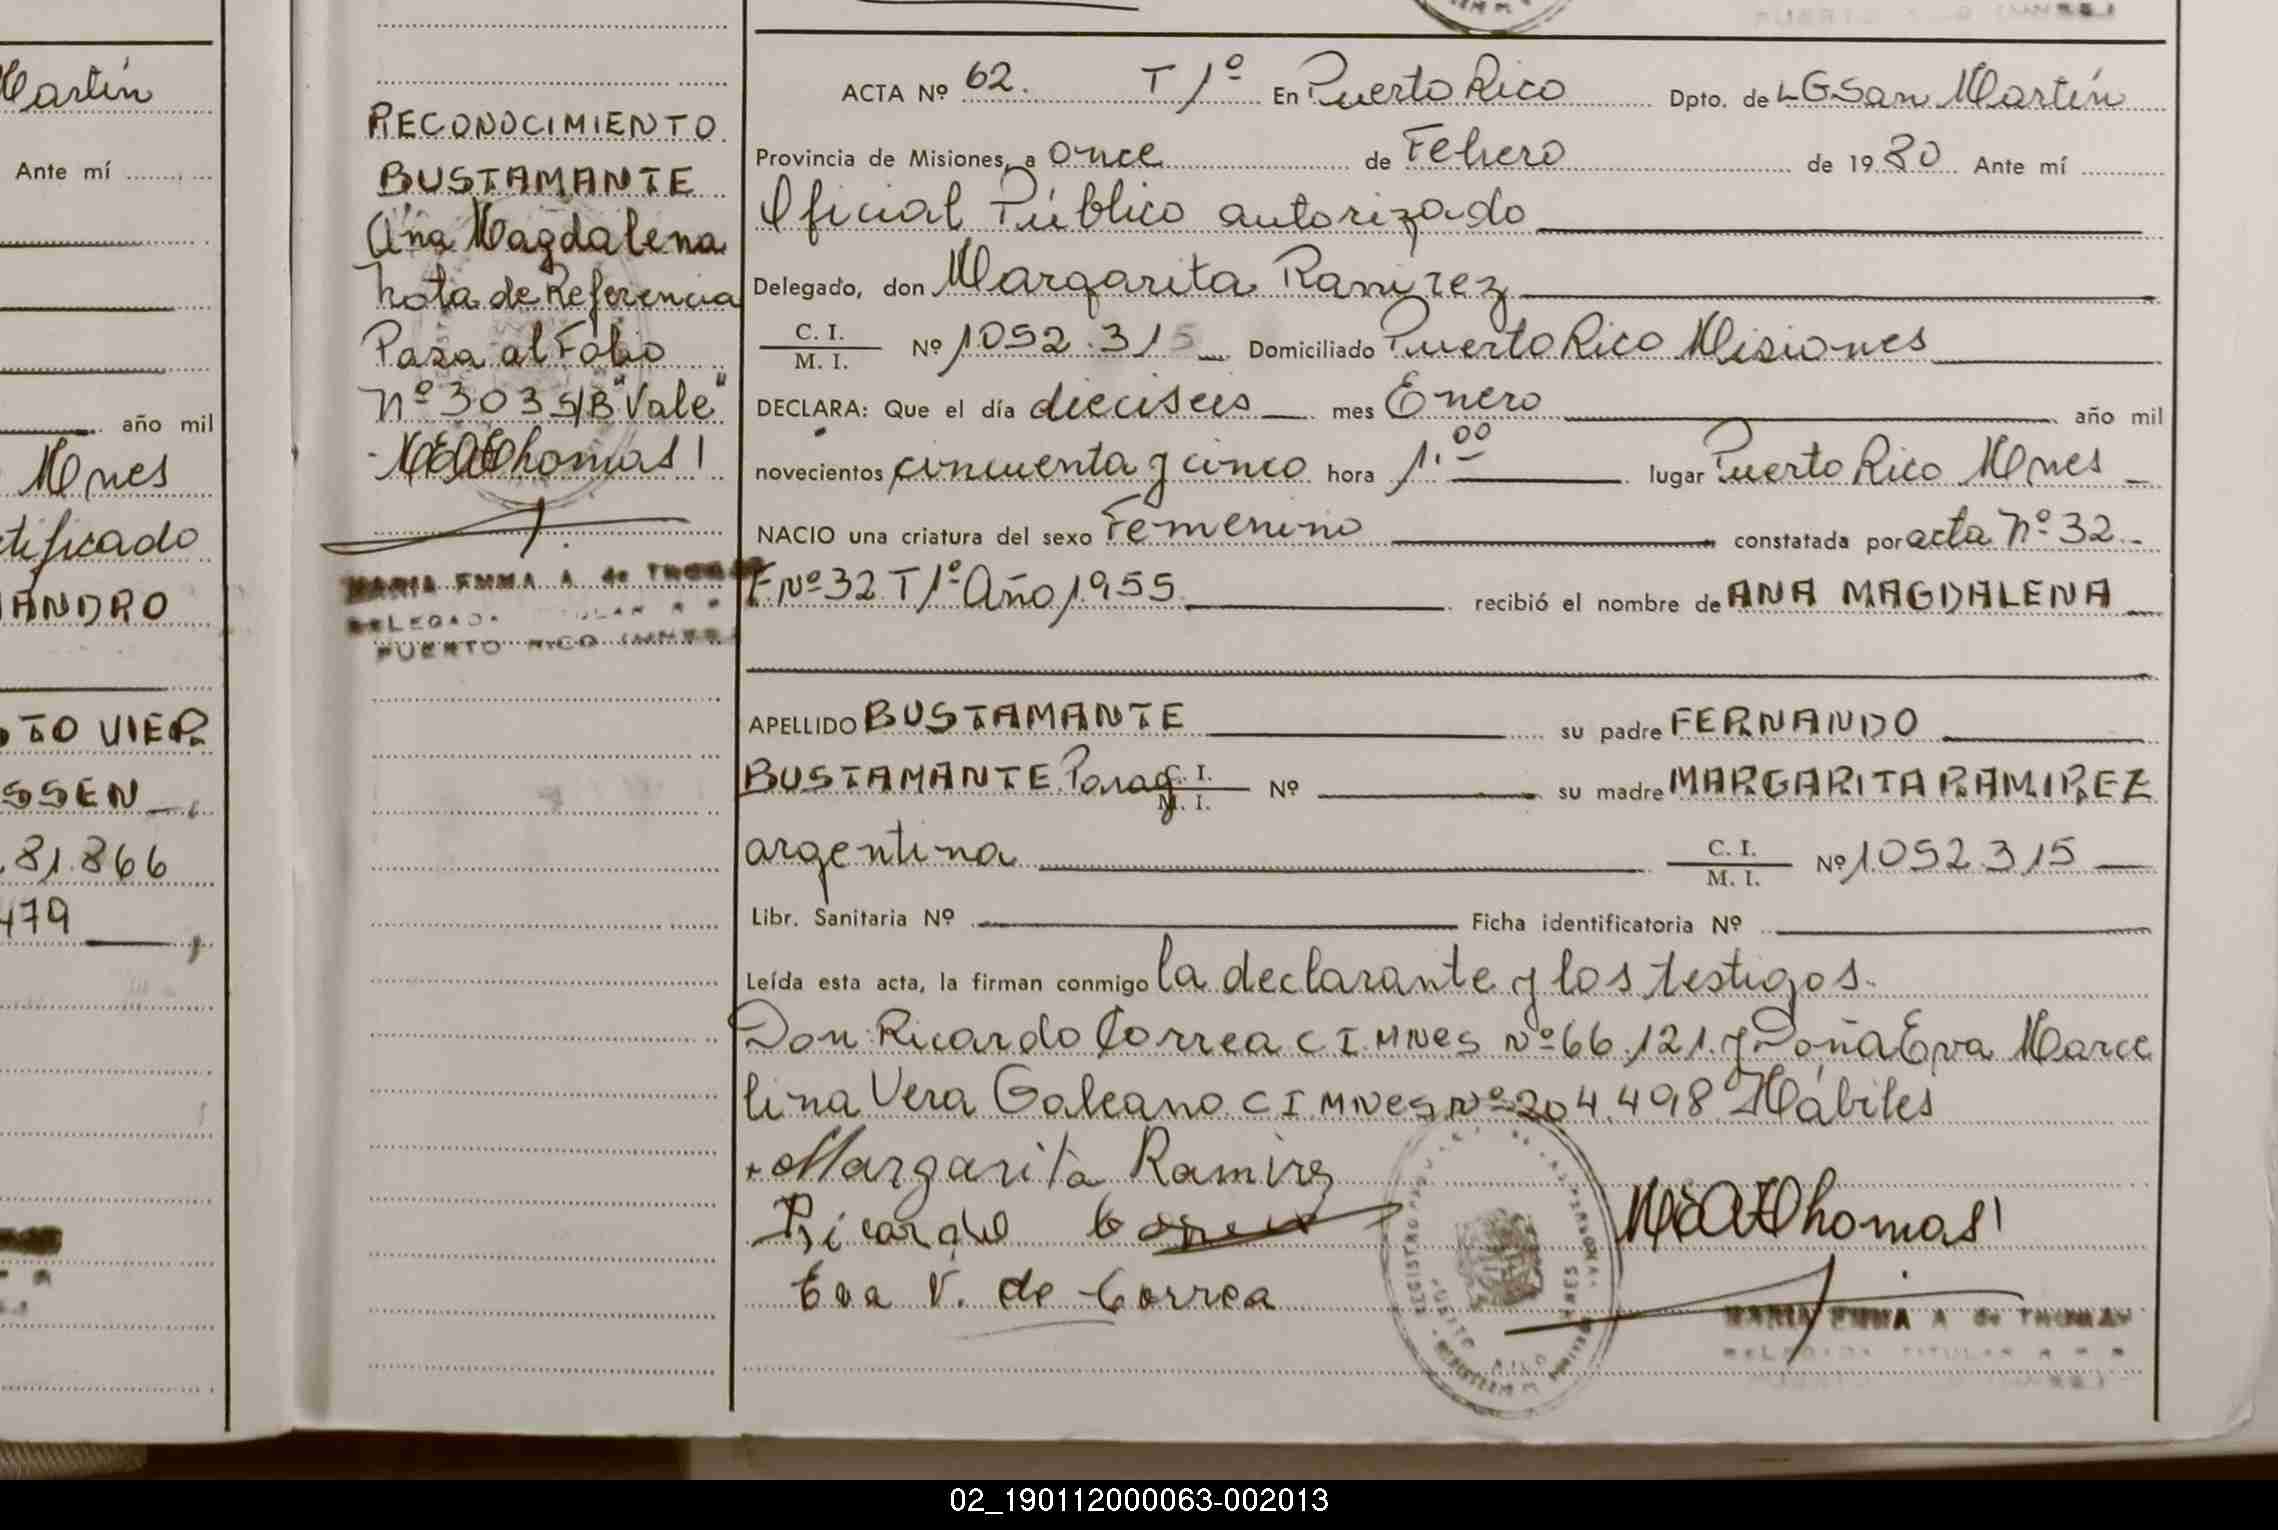 Martín
Ante mí
año mil
Mnes
tificado
JANDRO
TO VIER
SSEN
.81.866
479
RECONOCIMIENTO
BUSTAMANTE
Ana Magdalena
Nota de Referencia
Pasa al Folio
Nº 303 S/B "Vale"
MEAThomas
MARIA EMMA A de THOMAS
DELEGADA TITULAR
PUERTO RICO (MNES)
ACTA Nº 62. T 1º En Puerto Rico Dpto. de LGSan Martín
Provincia de Misiones, a once de Febrero de 19 80 Ante mí
Oficial Público autorizado
Delegado, don Margarita Ramirez
C. I. / M. I. Nº 1052.315 Domiciliado Puerto Rico Misiones
DECLARA: Que el día dieciseis mes Enero año mil
novecientos cincuenta y cinco hora 1.00 lugar Puerto Rico Mnes
NACIO una criatura del sexo Femenino constatada por acta Nº 32
F Nº 32 T 1º Año 1955 recibió el nombre de ANA MAGDALENA
APELLIDO BUSTAMANTE su padre FERNANDO
BUSTAMANTE Parag C. I. / M. I. Nº su madre MARGARITA RAMIREZ
argentina C. I. / M. I. Nº 1.052.315
Libr. Sanitaria Nº Ficha identificatoria Nº
Leída esta acta, la firman conmigo la declarante y los testigos
Don Ricardo Correa C I MNes Nº 66.121 y Doña Eva Marce
lina Vera Galeano C I MNes Nº 204.498 Hábiles
Margarita Ramirez
Ricardo Correa
MEAThomas
Eva V. de Correa
MARIA EMMA A de THOMAS
DELEGADA TITULAR
02_190112000063-002013